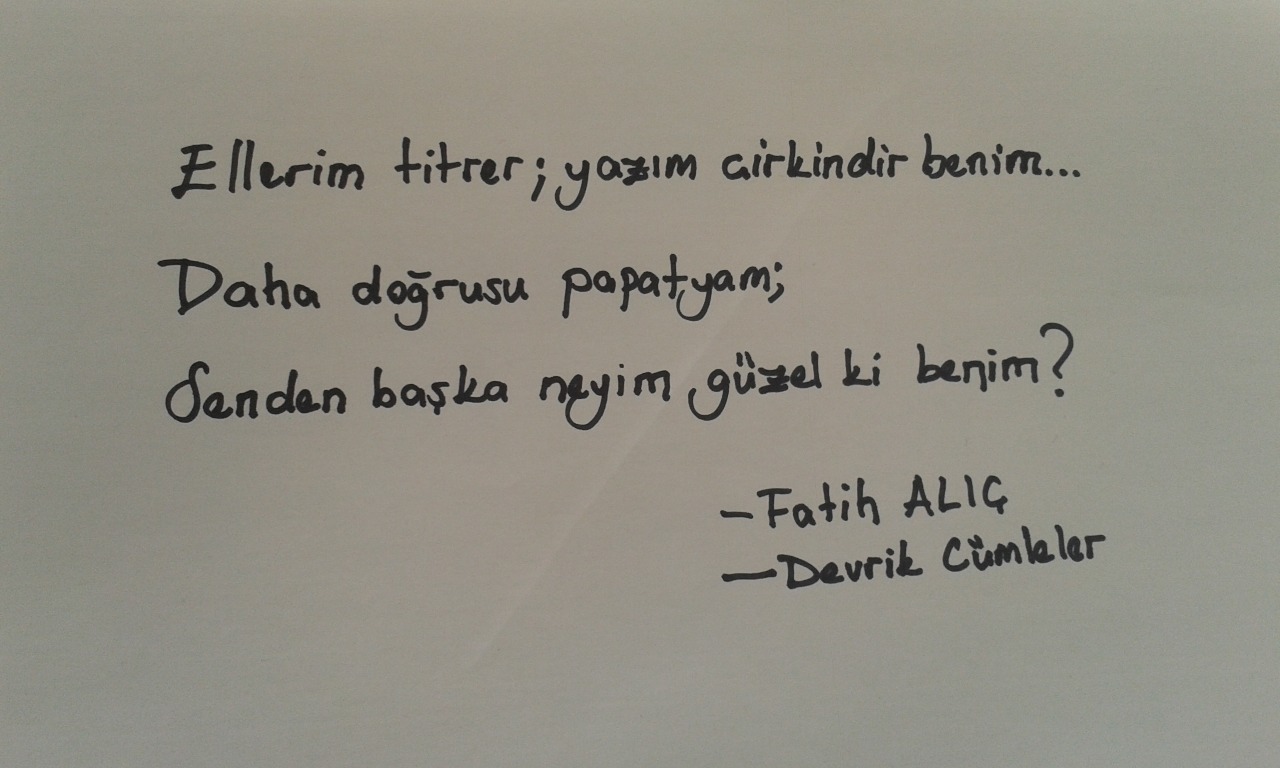 Ellerim titrer; yazım çirkindir benim...
Daha doğrusu papatyam;
Senden başka neyim güzel ki benim?
-Fatih ALIÇ
-Devrik Cümleler